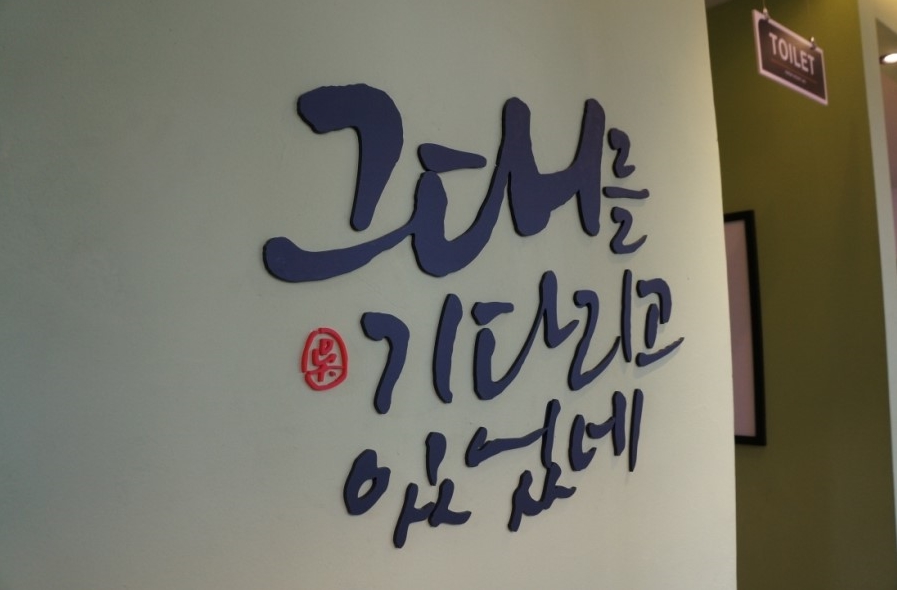 그대를
기다리고
있었네
TOILET